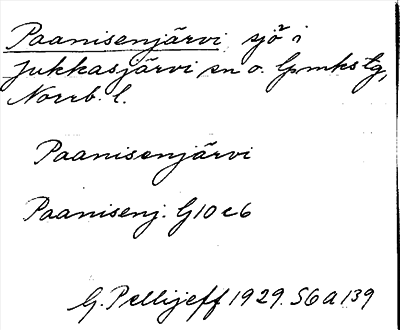 Paanisenjärvi sjö i
Jukkasjärvi sn o. lpmkstg,
Norrb. l.
Paanisenjärvi
Paanisenj. G10c6
G. Pellijeff 1929. S6a139